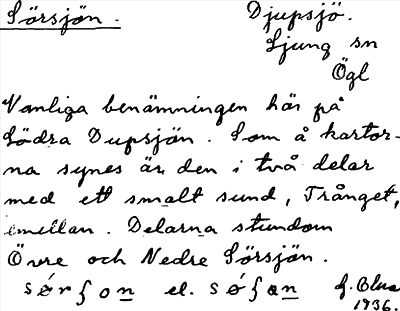 Sörsjön.
Djupsjö.
Ljung sn
Ögl
Vanliga benämningen här på
Södra Dupsjön. Som å kartor-
na synes är den i två delar
med ett smalt sund, Trånget,
emellan. Delarna stundom
Övre och Nedre Sörsjön.
sǿrʃon el. sǿʃan
1936.